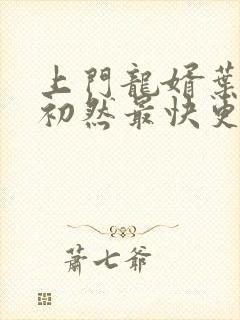 上門龍婿葉
初然最快更
蕭七爺